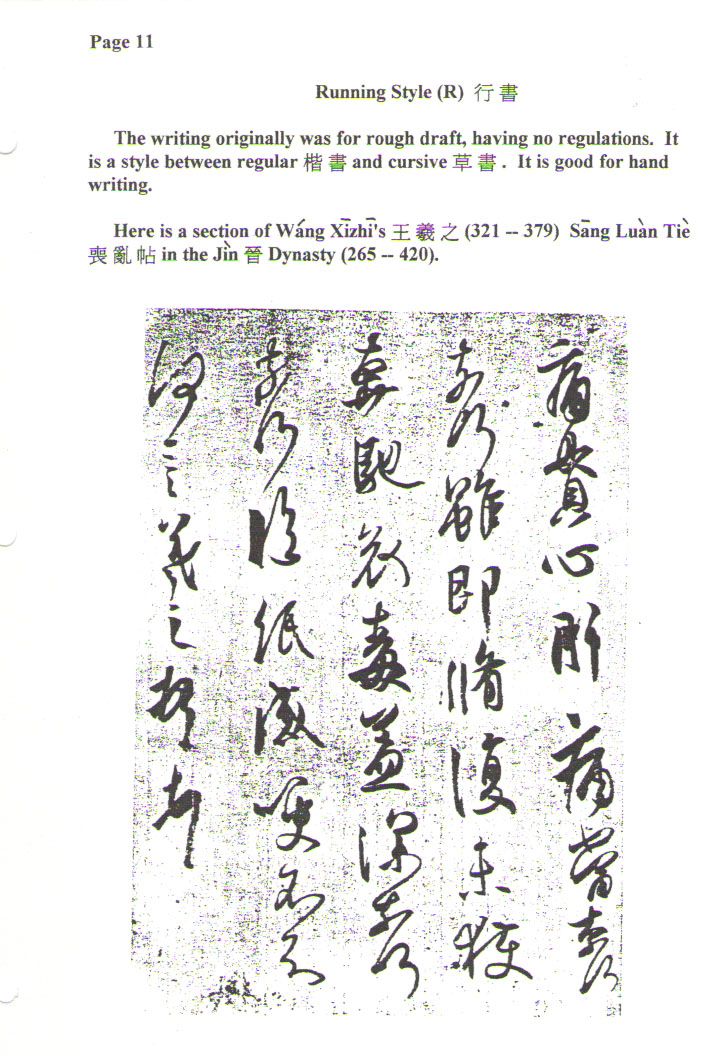 Page 11
Running Style (R) 行書
The writing originally was for rough draft, having no regulations. It
is a style between regular 楷書 and cursive 草書. It is good for hand
writing.
Here is a section of Wáng Xīzhī's 王羲之 (321 -- 379) Sāng Luàn Tiè
喪亂帖 in the Jìn 晉 Dynasty (265 -- 420).
痛貫心肝痛當奈何
奈何雖即脩復未獲
奔馳哀毒益深奈何
奈何臨紙感哽不知
何言羲之頓首